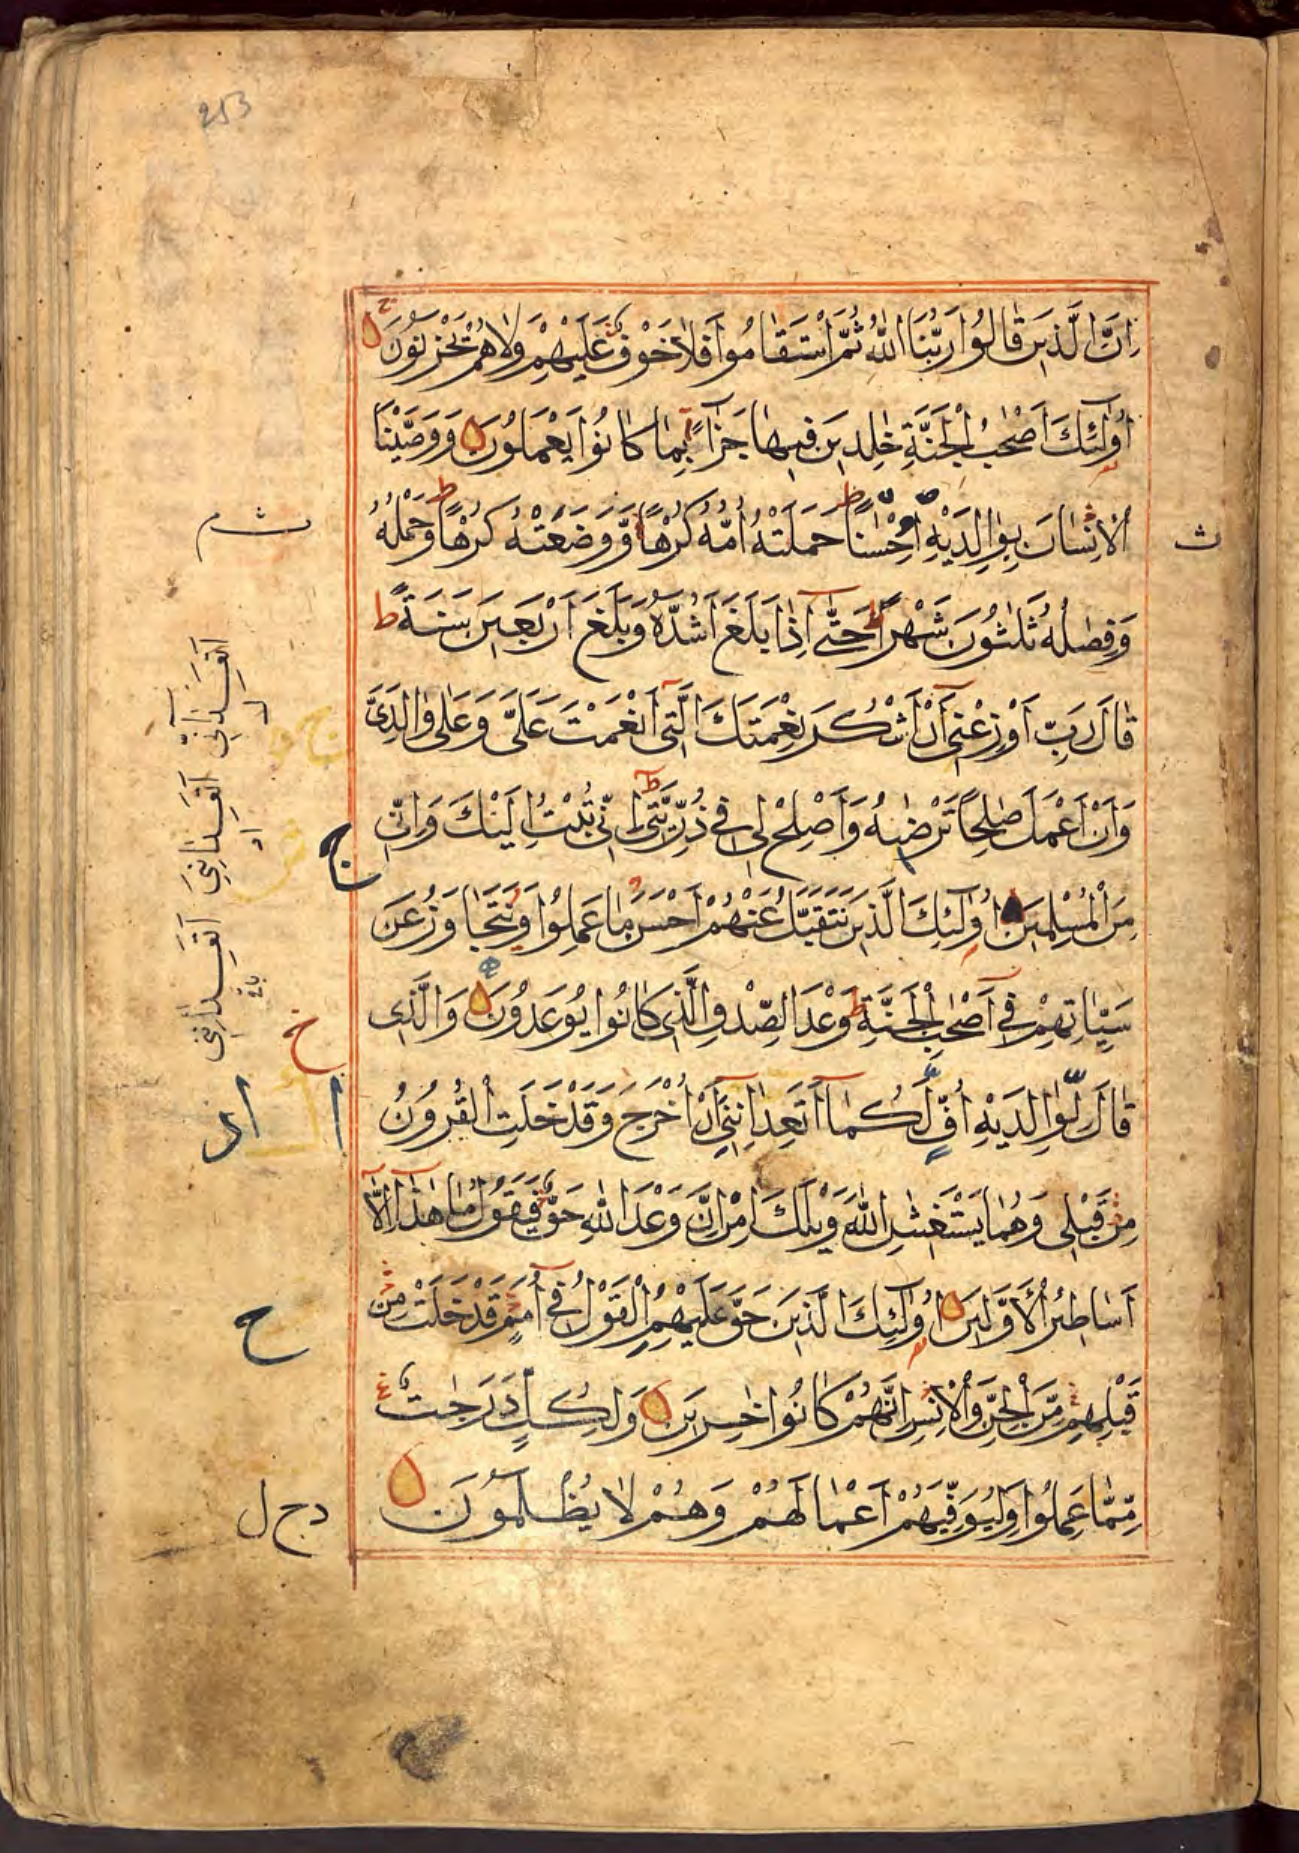 253
اِنَّ الَّذِينَ قَالُوا رَبُّنَا اللّٰهُ ثُمَّ اسْتَقَامُوا فَلَا خَوْفٌ عَلَيْهِمْ وَلَا هُمْ يَحْزَنُونَ
اُولٰٓئِكَ اَصْحٰبُ الْجَنَّةِ خٰلِدِينَ فِيهَا جَزَآءً بِمَا كَانُوا يَعْمَلُونَ وَوَصَّيْنَا
الْاِنْسَانَ بِوَالِدَيْهِ اِحْسٰنًا حَمَلَتْهُ اُمُّهُ كُرْهًا وَّوَضَعَتْهُ كُرْهًا وَحَمْلُهُ
وَفِصٰلُهُ ثَلٰثُونَ شَهْرًا حَتّٰٓى اِذَا بَلَغَ اَشُدَّهُ وَبَلَغَ اَرْبَعِينَ سَنَةً
قَالَ رَبِّ اَوْزِعْنِىٓ اَنْ اَشْكُرَ نِعْمَتَكَ الَّتِىٓ اَنْعَمْتَ عَلَىَّ وَعَلٰى وَالِدَىَّ
وَاَنْ اَعْمَلَ صٰلِحًا تَرْضٰىهُ وَاَصْلِحْ لِى فِى ذُرِّيَّتِى اِنِّى تُبْتُ اِلَيْكَ وَاِنِّى
مِنَ الْمُسْلِمِينَ اُولٰٓئِكَ الَّذِينَ نَتَقَبَّلُ عَنْهُمْ اَحْسَنَ مَا عَمِلُوا وَنَتَجَاوَزُ عَنْ
سَيِّاٰتِهِمْ فِىٓ اَصْحٰبِ الْجَنَّةِ وَعْدَ الصِّدْقِ الَّذِى كَانُوا يُوعَدُونَ وَالَّذِى
قَالَ لِوَالِدَيْهِ اُفٍّ لَّكُمَآ اَتَعِدَانِنِىٓ اَنْ اُخْرَجَ وَقَدْ خَلَتِ الْقُرُونُ
مِنْ قَبْلِى وَهُمَا يَسْتَغِيثٰنِ اللّٰهَ وَيْلَكَ اٰمِنْ اِنَّ وَعْدَ اللّٰهِ حَقٌّ فَيَقُولُ مَا هٰذَآ اِلَّآ
اَسَاطِيرُ الْاَوَّلِينَ اُولٰٓئِكَ الَّذِينَ حَقَّ عَلَيْهِمُ الْقَوْلُ فِىٓ اُمَمٍ قَدْ خَلَتْ مِنْ
قَبْلِهِمْ مِّنَ الْجِنِّ وَالْاِنْسِ اِنَّهُمْ كَانُوا خٰسِرِينَ وَلِكُلٍّ دَرَجٰتٌ
مِّمَّا عَمِلُوا وَلِيُوَفِّيَهُمْ اَعْمَالَهُمْ وَهُمْ لَا يُظْلَمُونَ
ث
خ
ح
د ج ل